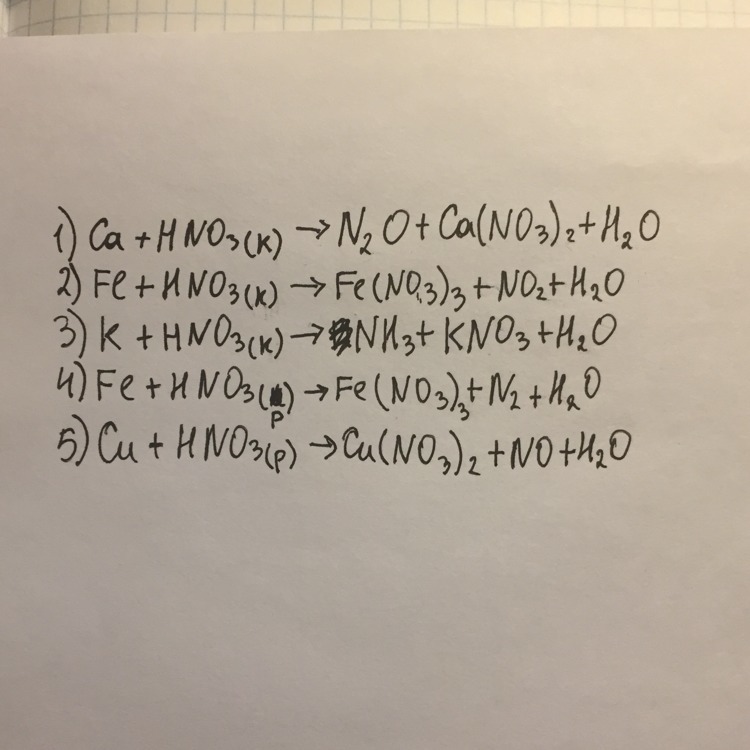 1) Ca + HNO₃(к) → N₂O + Ca(NO₃)₂ + H₂O
2) Fe + HNO₃(к) → Fe(NO₃)₃ + NO₂ + H₂O
3) K + HNO₃(к) → NH₃ + KNO₃ + H₂O
4) Fe + HNO₃(р) → Fe(NO₃)₃ + N₂ + H₂O
5) Cu + HNO₃(р) → Cu(NO₃)₂ + NO + H₂O